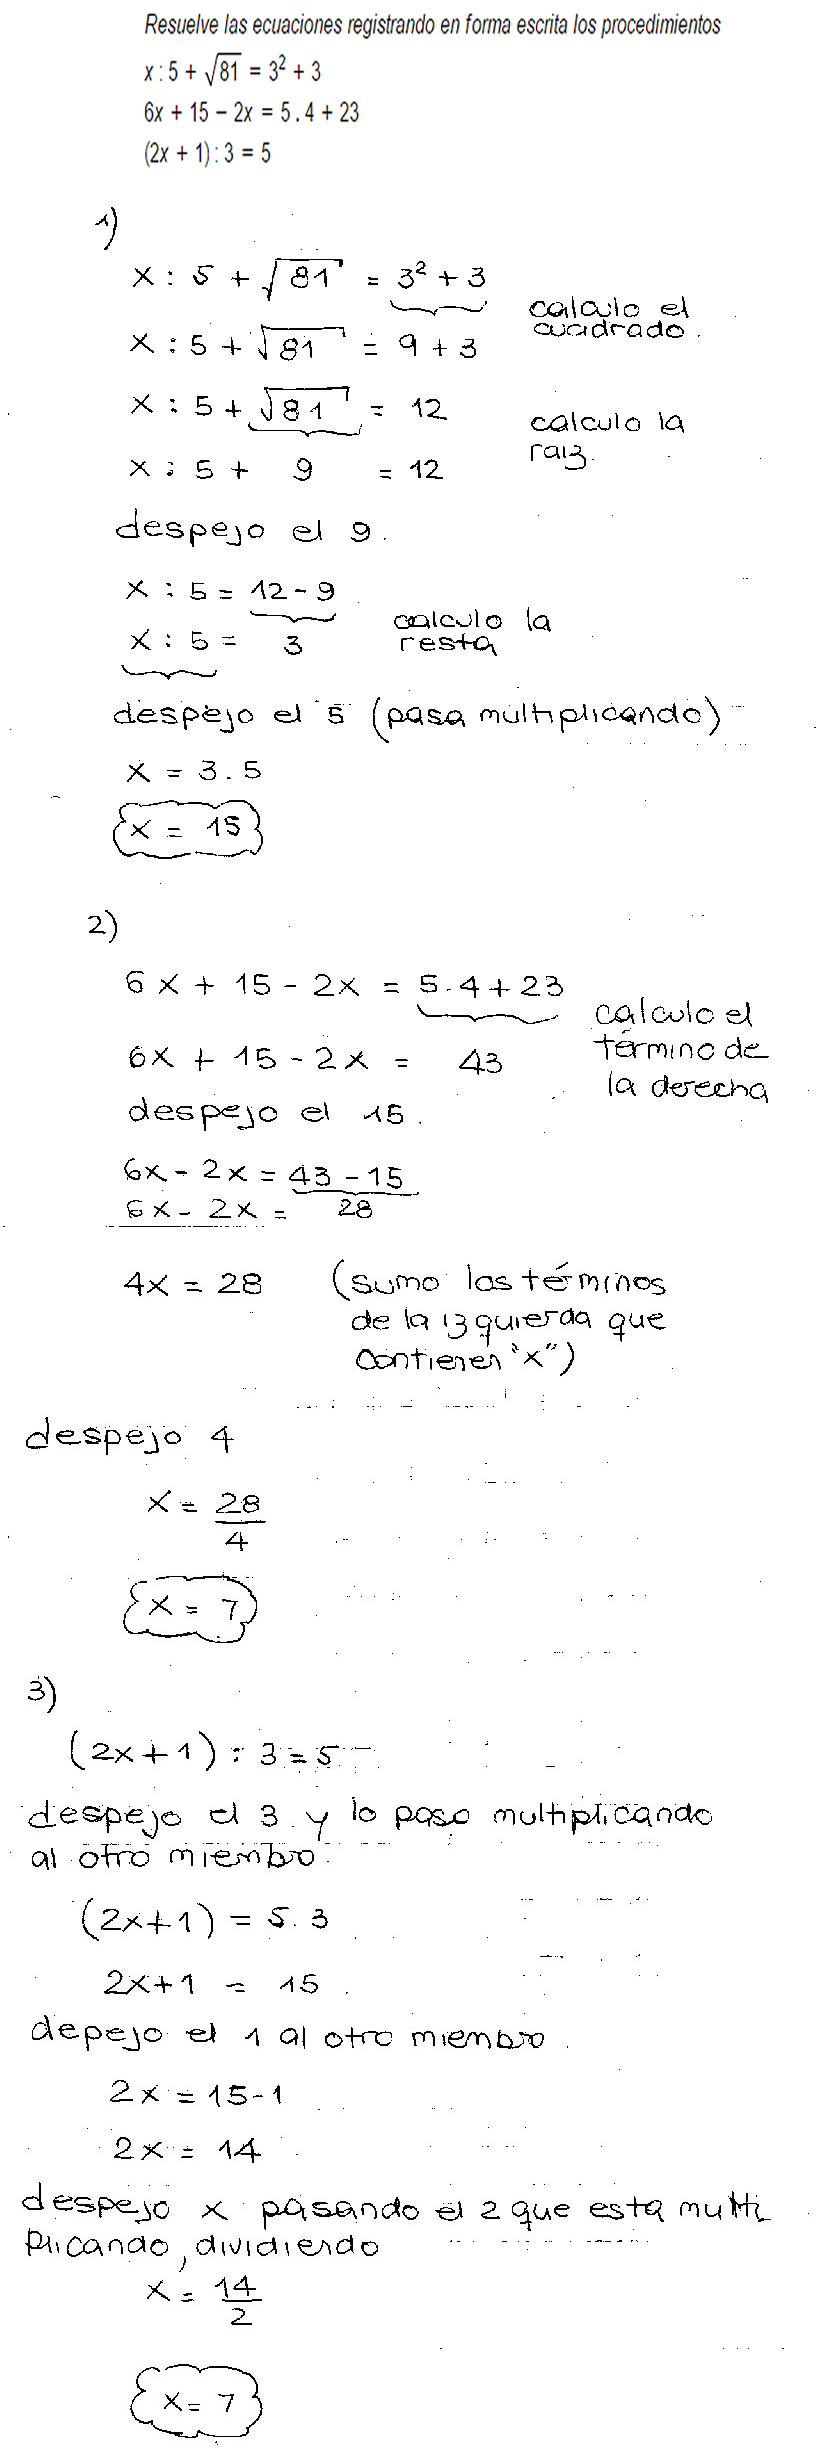 Resuelve las ecuaciones registrando en forma escrita los procedimientos
x : 5 + √81 = 3² + 3
6x + 15 − 2x = 5 . 4 + 23
(2x + 1) : 3 = 5
1)
x : 5 + √81 = 3² + 3
calculo el
cuadrado.
x : 5 + √81 = 9 + 3
x : 5 + √81 = 12
calculo la
raiz.
x : 5 + 9 = 12
despejo el 9.
x : 5 = 12 - 9
calculo la
resta
x : 5 = 3
despejo el 5 (pasa multiplicando)
x = 3 . 5
x = 15
2)
6x + 15 - 2x = 5 . 4 + 23
calculo el
término de
la derecha
6x + 15 - 2x = 43
despejo el 15.
6x - 2x = 43 - 15
6x - 2x = 28
4x = 28 (sumo los términos
de la izquierda que
contienen "x")
despejo 4
x = 28/4
x = 7
3)
(2x + 1) : 3 = 5
despejo el 3 y lo paso multiplicando
al otro miembro.
(2x+1) = 5 . 3
2x+1 = 15
depejo el 1 al otro miembro.
2x = 15-1
2x = 14
despejo x pasando el 2 que esta multi
plicando, dividiendo
x = 14/2
x = 7